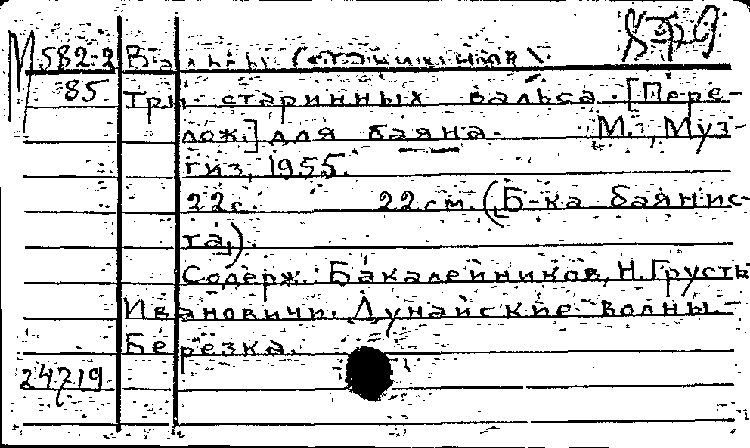 М582-2 Вальсы (старинные).
85 Три старинных вальса. [Пере-
лож.] для баяна. М., Муз-
гиз, 1955.
22 с. 22 см. (Б-ка баянис-
та).
Содерж.: Бакалейников, Н. Грусть
Иванович. Дунайские волны. -
Березка.
24719